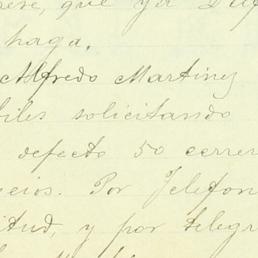 que ya
haga.
Alfredo Martinez
solicitando
defecto 50 cerre
cios. Por Telefon
itud, y por telegr